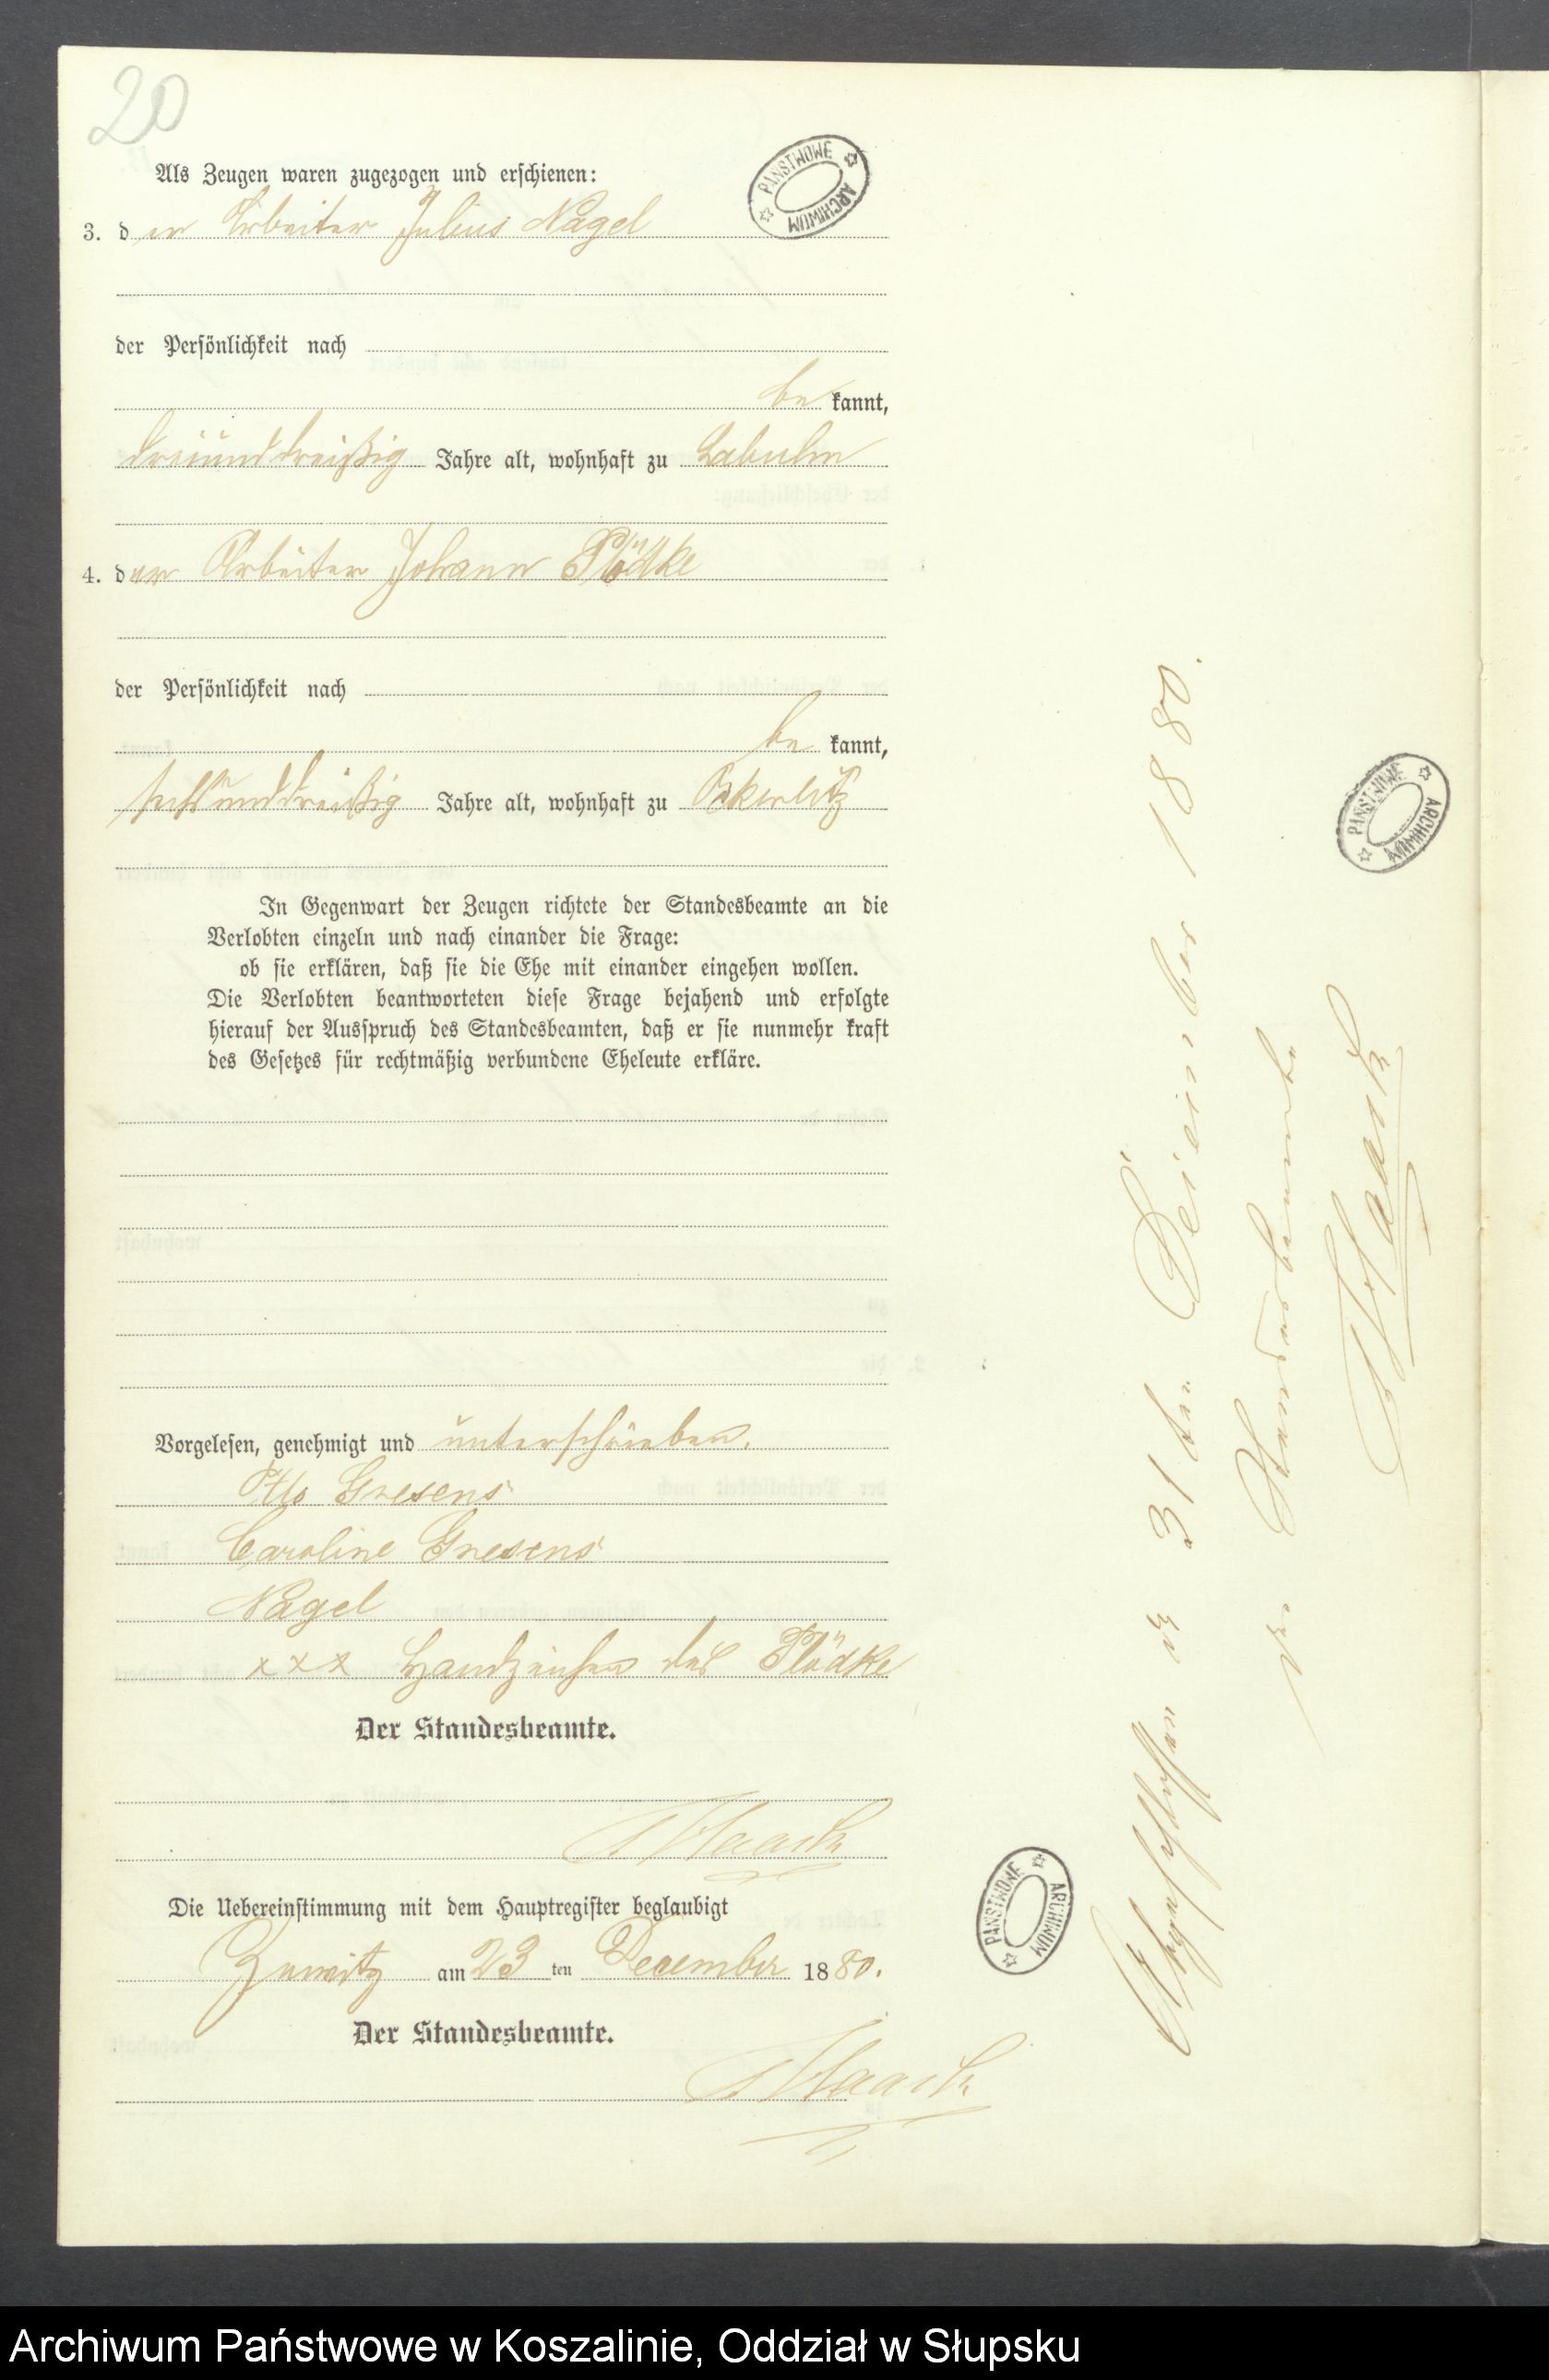 20
Als Zeugen waren zugezogen und erschienen:
3. der Arbeiter Julius Nagel
der Persönlichkeit nach
bekannt,
dreiunddreißig Jahre alt, wohnhaft zu Labuhn
4. der Arbeiter Johann Plödke
der Persönlichkeit nach
bekannt,
Jahre alt, wohnhaft zu
In Gegenwart der Zeugen richtete der Standesbeamte an die
Verlobten einzeln und nach einander die Frage:
ob sie erklären, daß sie die Ehe mit einander eingehen wollen.
Die Verlobten beantworteten diese Frage bejahend und erfolgte
hierauf der Ausspruch des Standesbeamten, daß er sie nunmehr kraft
des Gesetzes für rechtmäßig verbundene Eheleute erkläre.
Vorgelesen, genehmigt und unterschrieben.
Otto Gresens
Caroline Gresens
Nagel
xxx Handzeichen des Plödke
Der Standesbeamte.
Die Uebereinstimmung mit dem Hauptregister beglaubigt
Zewitz am 23ten December 1880.
Der Standesbeamte.
Abgeschlossen 31ten Dezember 1880.
Der Standesbeamte
PAŃSTWOWE ARCHIWUM
PAŃSTWOWE ARCHIWUM
PAŃSTWOWE ARCHIWUM
Archiwum Państwowe w Koszalinie, Oddział w Słupsku